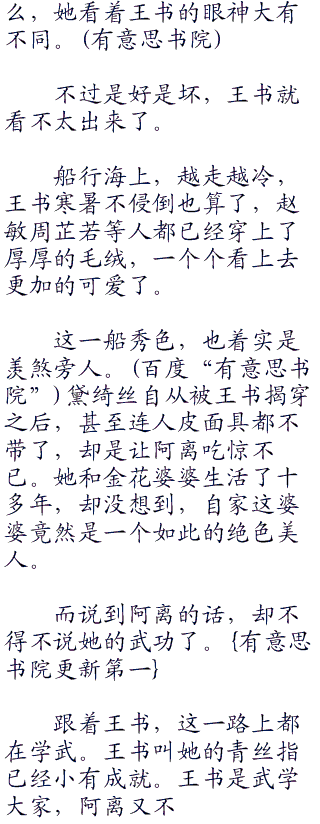 么，她看着王书的眼神大有
不同。(有意思书院)
不过是好是坏，王书就
看不太出来了。
船行海上，越走越冷，
王书寒暑不侵倒也算了，赵
敏周芷若等人都已经穿上了
厚厚的毛绒，一个个看上去
更加的可爱了。
这一船秀色，也着实是
羡煞旁人。(百度“有意思书
院”)黛绮丝自从被王书揭穿
之后，甚至连人皮面具都不
带了，却是让阿离吃惊不
已。她和金花婆婆生活了十
多年，却没想到，自家这婆
婆竟然是一个如此的绝色美
人。
而说到阿离的话，却不
得不说她的武功了。{有意思
书院更新第一}
跟着王书，这一路上都
在学武。王书叫她的青丝指
已经小有成就。王书是武学
大家，阿离又不